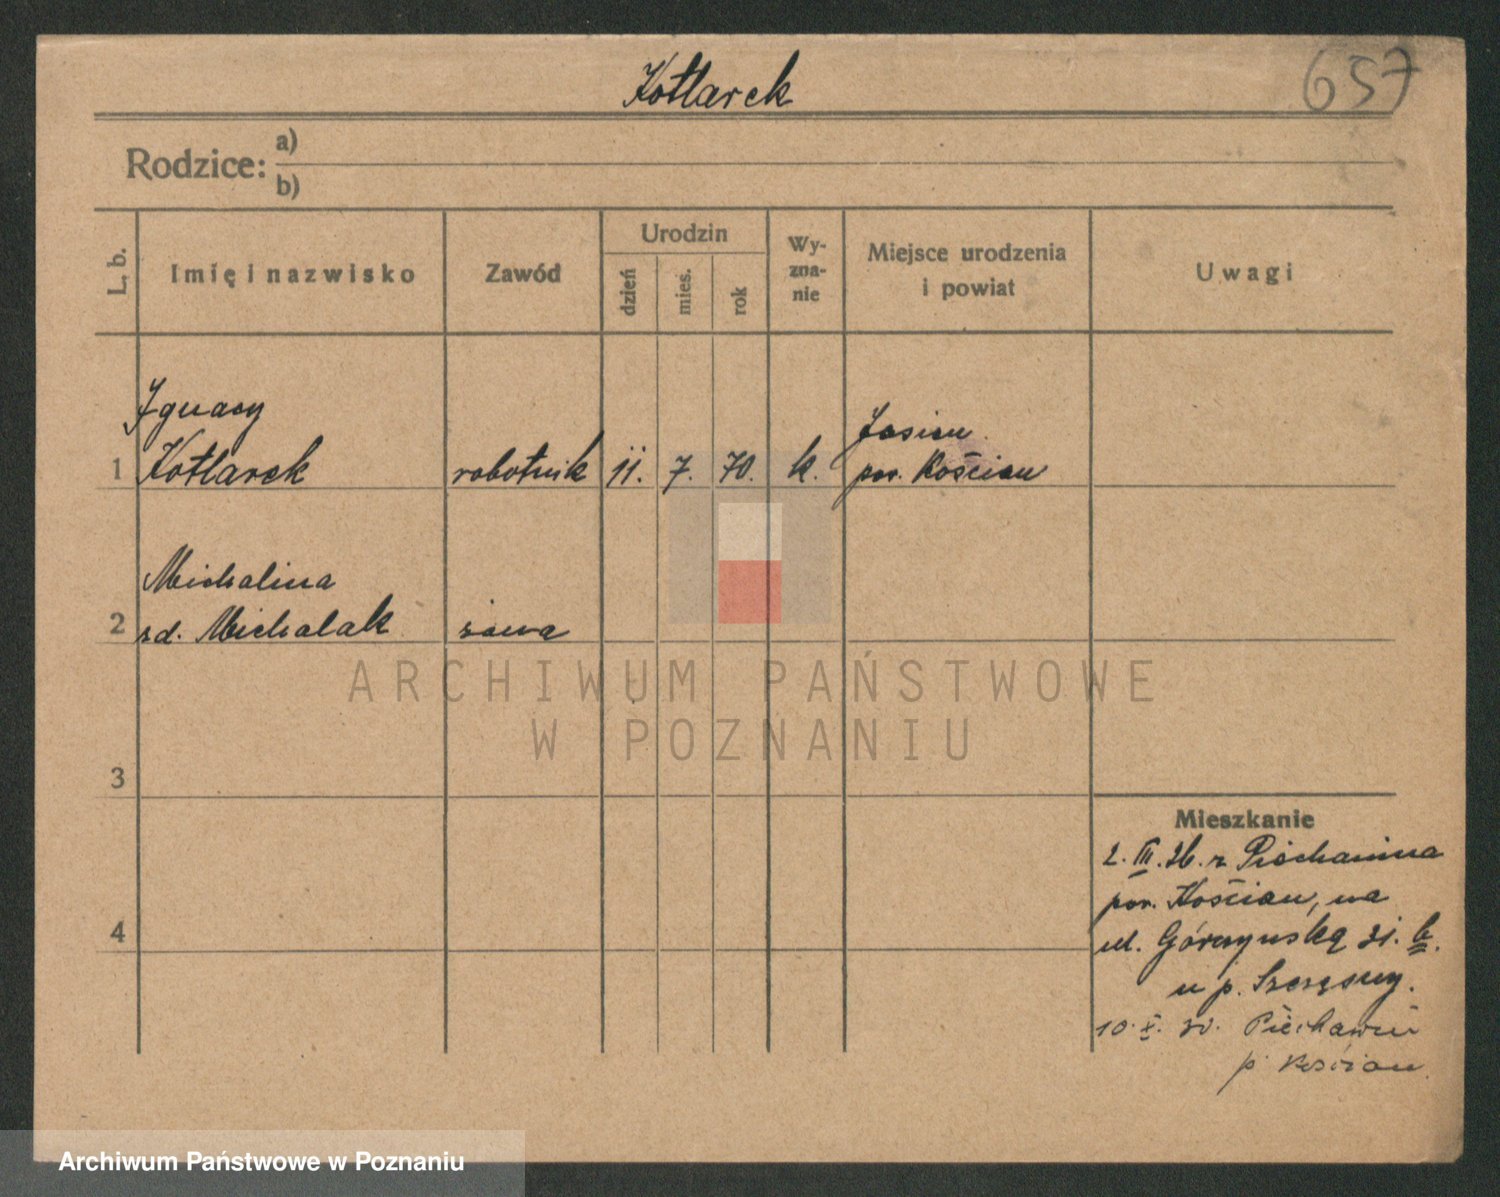 Kotlarek
657
Rodzice:
a)
b)
L. b.
Imię i nazwisko
Zawód
Urodzin
dzień
mies.
rok
Wy-
zna-
nie
Miejsce urodzenia
i powiat
Uwagi
Ignacy
1 Kotlarek robotnik 11. 7. 70. k.
Jasien
pow. Kościan
Michalina
2 zd. Michalak żona
3
4
Mieszkanie
2. III. 26. z Piechanina
pow. Kościan, na
ul. Górczyńską 31. b.
u p. Szczęsny.
10. X. Piechanin
p. Kościan
ARCHIWUM PAŃSTWOWE
W POZNANIU
Archiwum Państwowe w Poznaniu